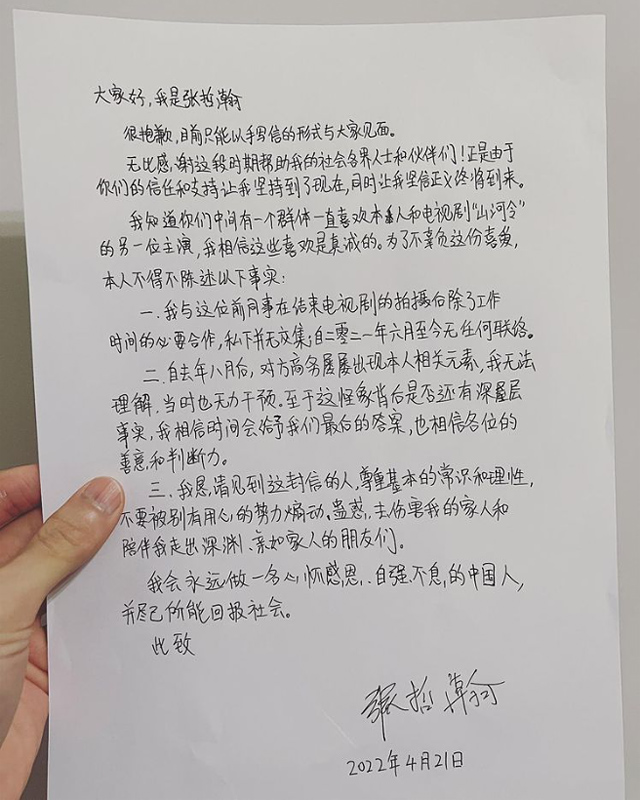 大家好，我是张哲瀚
很抱歉，目前只能以手写信的形式与大家见面。
无比感谢这段时期帮助我的社会各界人士和伙伴们！正是由于
你们的信任和支持让我坚持到了现在，同时让我坚信正义终将到来。
我知道你们中间有一个群体一直喜欢本人和电视剧“山河令”
的另一位主演，我相信这些喜欢是真诚的。为了不辜负这份喜爱，
本人不得不陈述以下事实：
一、我与这位前同事在结束电视剧的拍摄后除了工作
时间的必要合作，私下并无交集；自二零二一年六月至今无任何联络。
二、自去年八月后，对方商务屡屡出现本人相关元素，我无法
理解，当时也无力干预。至于这怪象背后是否还有深层
事实，我相信时间会给予我们最后的答案，也相信各位的
善意和判断力。
三、我恳请见到这封信的人，尊重基本的常识和理性，
不要被别有用心的势力煽动、蛊惑，去伤害我的家人和
陪伴我走出深渊、亲如家人的朋友们。
我会永远做一名心怀感恩、自强不息的中国人，
并尽己所能回报社会。
此致
张哲瀚
2022年4月21日